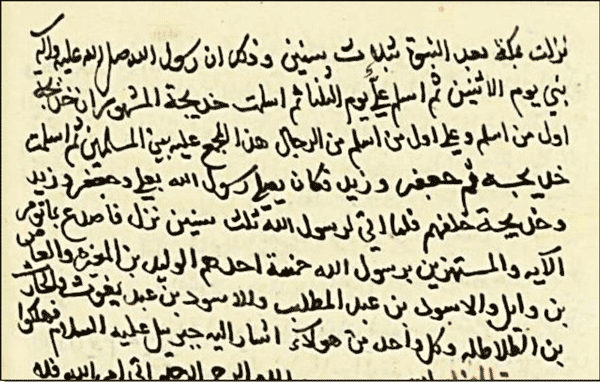 نزلت بمكة بعد النبوة بثلاث سنين وذلك ان رسول الله صلى الله عليه وآله
نبي يوم الاثنين ثم اسلم علي يوم الثلثا ثم اسلمت خديجة المشهور ان خديجة
اول من اسلم وعلي اول من اسلم من الرجال هذا المجمع عليه بين المسلمين ثم اسلمت
خديجة ثم جعفر وزيد فكان يصلي رسول الله بعلي وجعفر وزيد
وخديجة خلفهم فلما اتى لرسول الله ثلث سنين نزل فاصدع بما تؤمر
الآيه والمستهزين برسول الله خمسة احدهم الوليد بن المغيرة والعاص
بن وايل والاسود بن عبد المطلب والاسود بن عبد يغوث والحارث
بن الطلاطله وكل واحد من هولاء اشار اليه جبريل عليه السلام فهلكوا